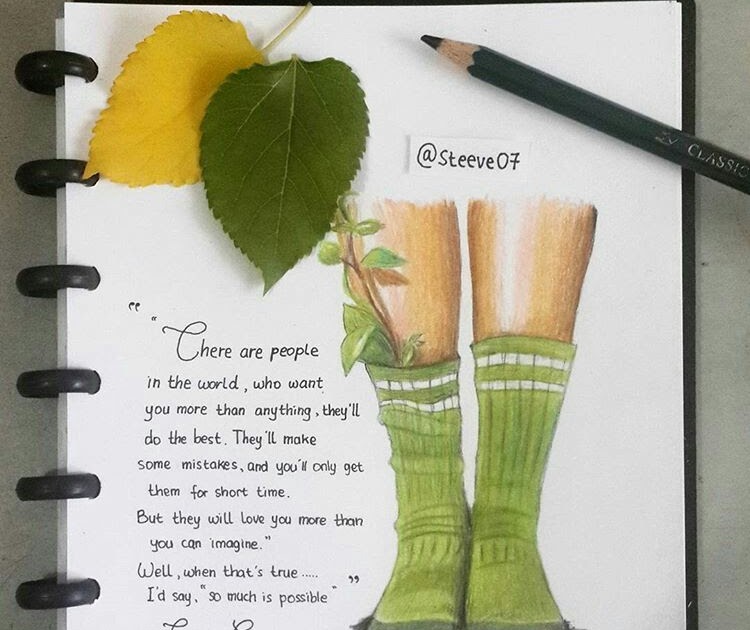 @Steeve07
CLASSIC
"
" There are people
in the world, who want
you more than anything, they'll
do the best. They'll make
some mistakes, and you'll only get
them for short time.
But they will love you more than
you can imagine."
Well, when that's true.....
I'd say, "so much is possible"
"